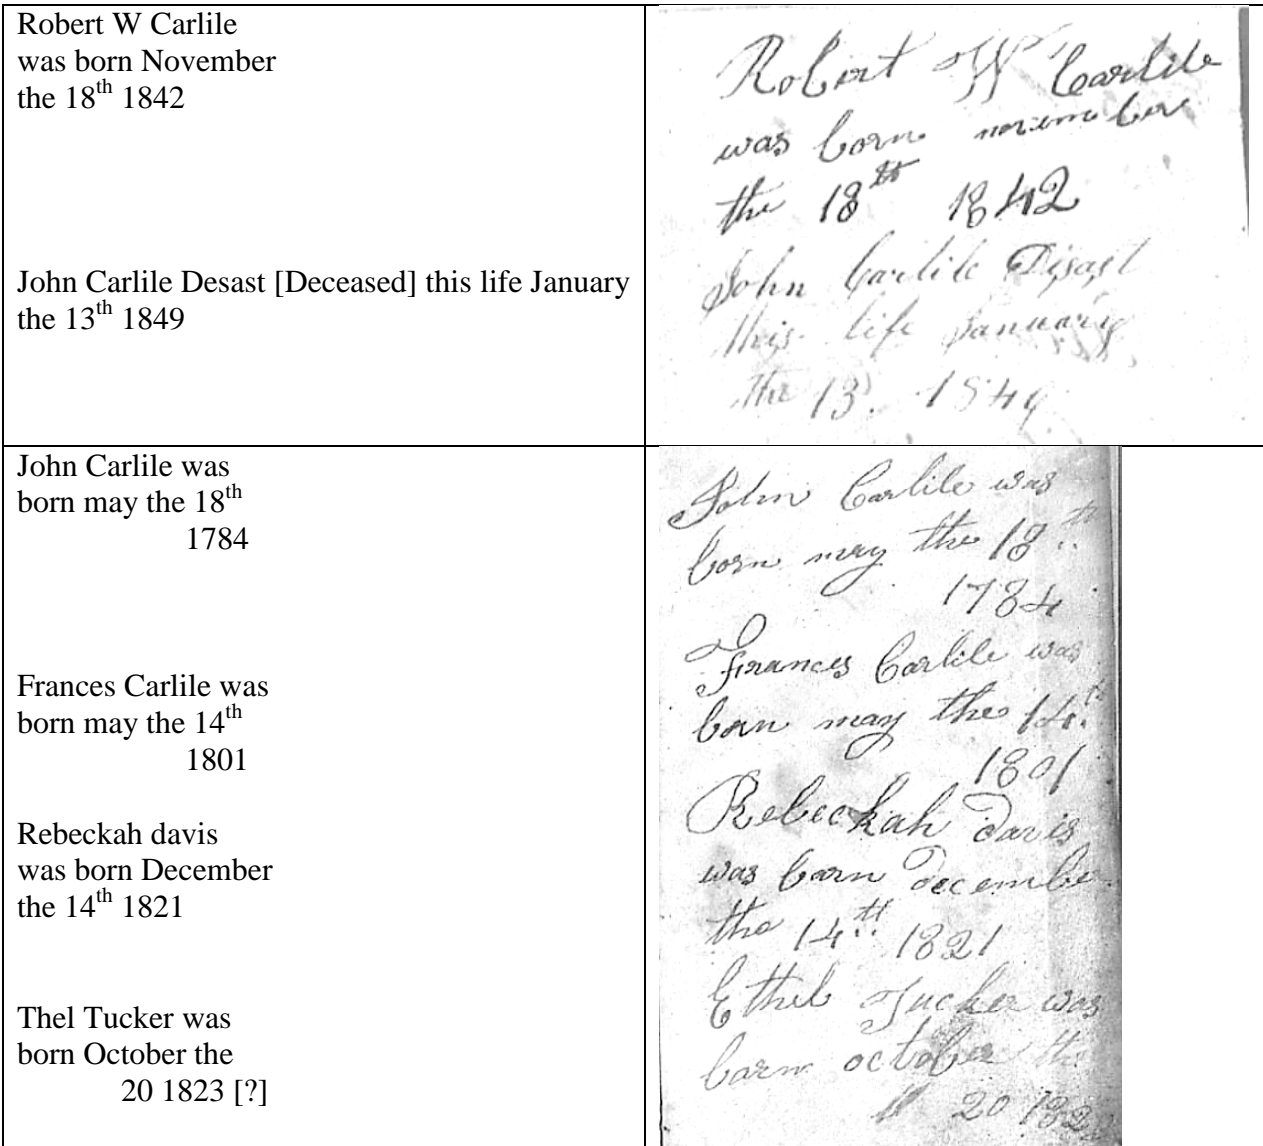 Robert W Carlile
was born November
the 18th 1842
John Carlile Desast [Deceased] this life January
the 13th 1849
Robert W Carlile
was born november
the 18th 1842
John Carlile Disast
this life January
the 13. 1849
John Carlile was
born may the 18th
1784
Frances Carlile was
born may the 14th
1801
Rebeckah davis
was born December
the 14th 1821
Thel Tucker was
born October the
20 1823 [?]
John Carlile was
born may the 18th
1784
Frances Carlile was
born may the 14th
1801
Rebeckah davis
was born december
the 14th 1821
Ethel Tucker was
born october the
20 182